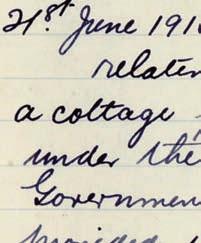 21st. June 191
relater
a cottage
under the
Governmen
provided